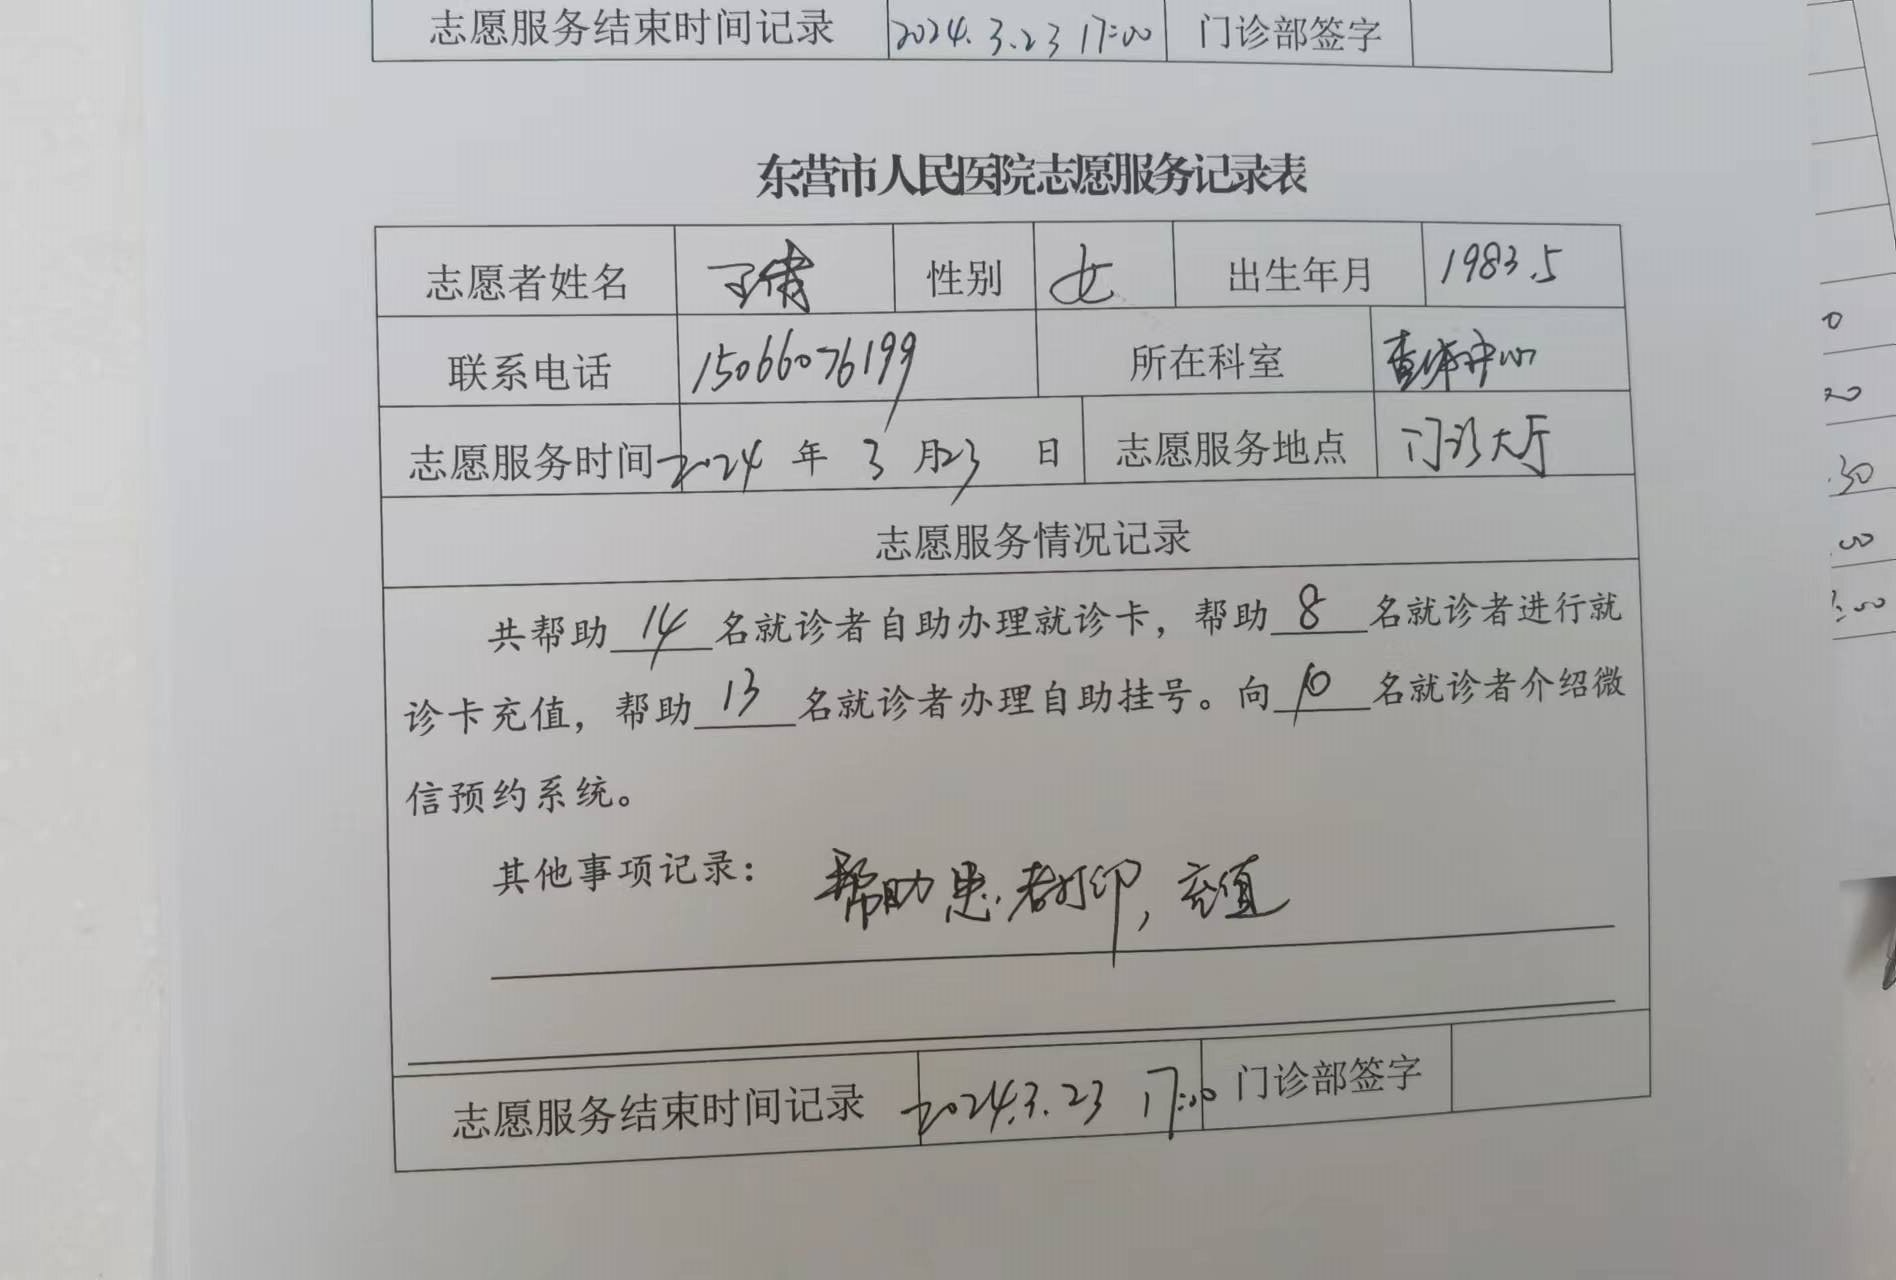 志愿服务结束时间记录 2024.3.23 17:00 门诊部签字
东营市人民医院志愿服务记录表
志愿者姓名 性别 女 出生年月 1983.5
联系电话 15066076199 所在科室 查体中心
志愿服务时间 2024 年 3 月 23 日 志愿服务地点 门诊大厅
志愿服务情况记录
共帮助 14 名就诊者自助办理就诊卡，帮助 8 名就诊者进行就
诊卡充值，帮助 13 名就诊者办理自助挂号。向 10 名就诊者介绍微
信预约系统。
其他事项记录：帮助患者打印，充值
志愿服务结束时间记录 2024.3.23 17:00 门诊部签字